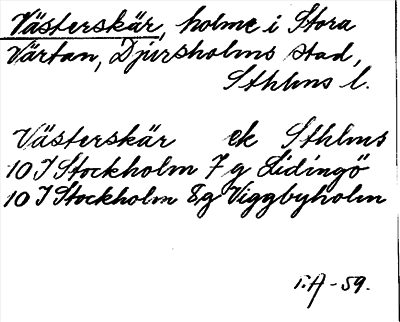 Västerskär, holme i Stora
Värtan, Djursholms stad,
Sthlms l.
Västerskär ek Sthlms
10 I Stockholm 7 g Lidingö
10 I Stockholm 8 g Viggbyholm
-59.